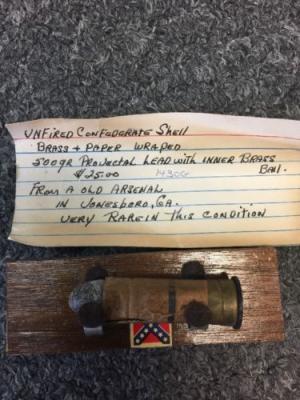 UNFIRED CONFEDERATE Shell
BRASS + PAPER WRAPED
500gR PROJECTAL LEAD with INNER BRASS
$25.00 BALL.
FROM A OLD ARSENAL
IN JONESBORO, GA.
VERY RARE IN THIS CONDITION